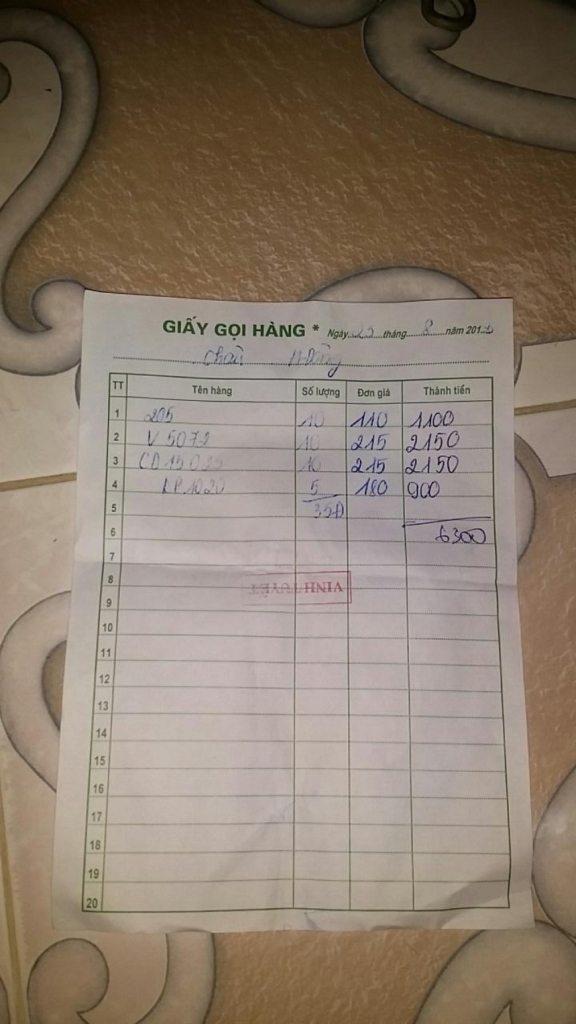 GIẤY GỌI HÀNG * Ngày 25 tháng 8 năm 201
Châu
TT Tên hàng Số lượng Đơn giá Thành tiền
1 205 10 110 1100
2 V 5072 10 215 2150
3 CD15025 10 215 2150
4 LP1020 5 180 900
5 35Đ
6 6300
7
8
VINH TUYẾT
9
10
11
12
13
14
15
16
17
18
19
20